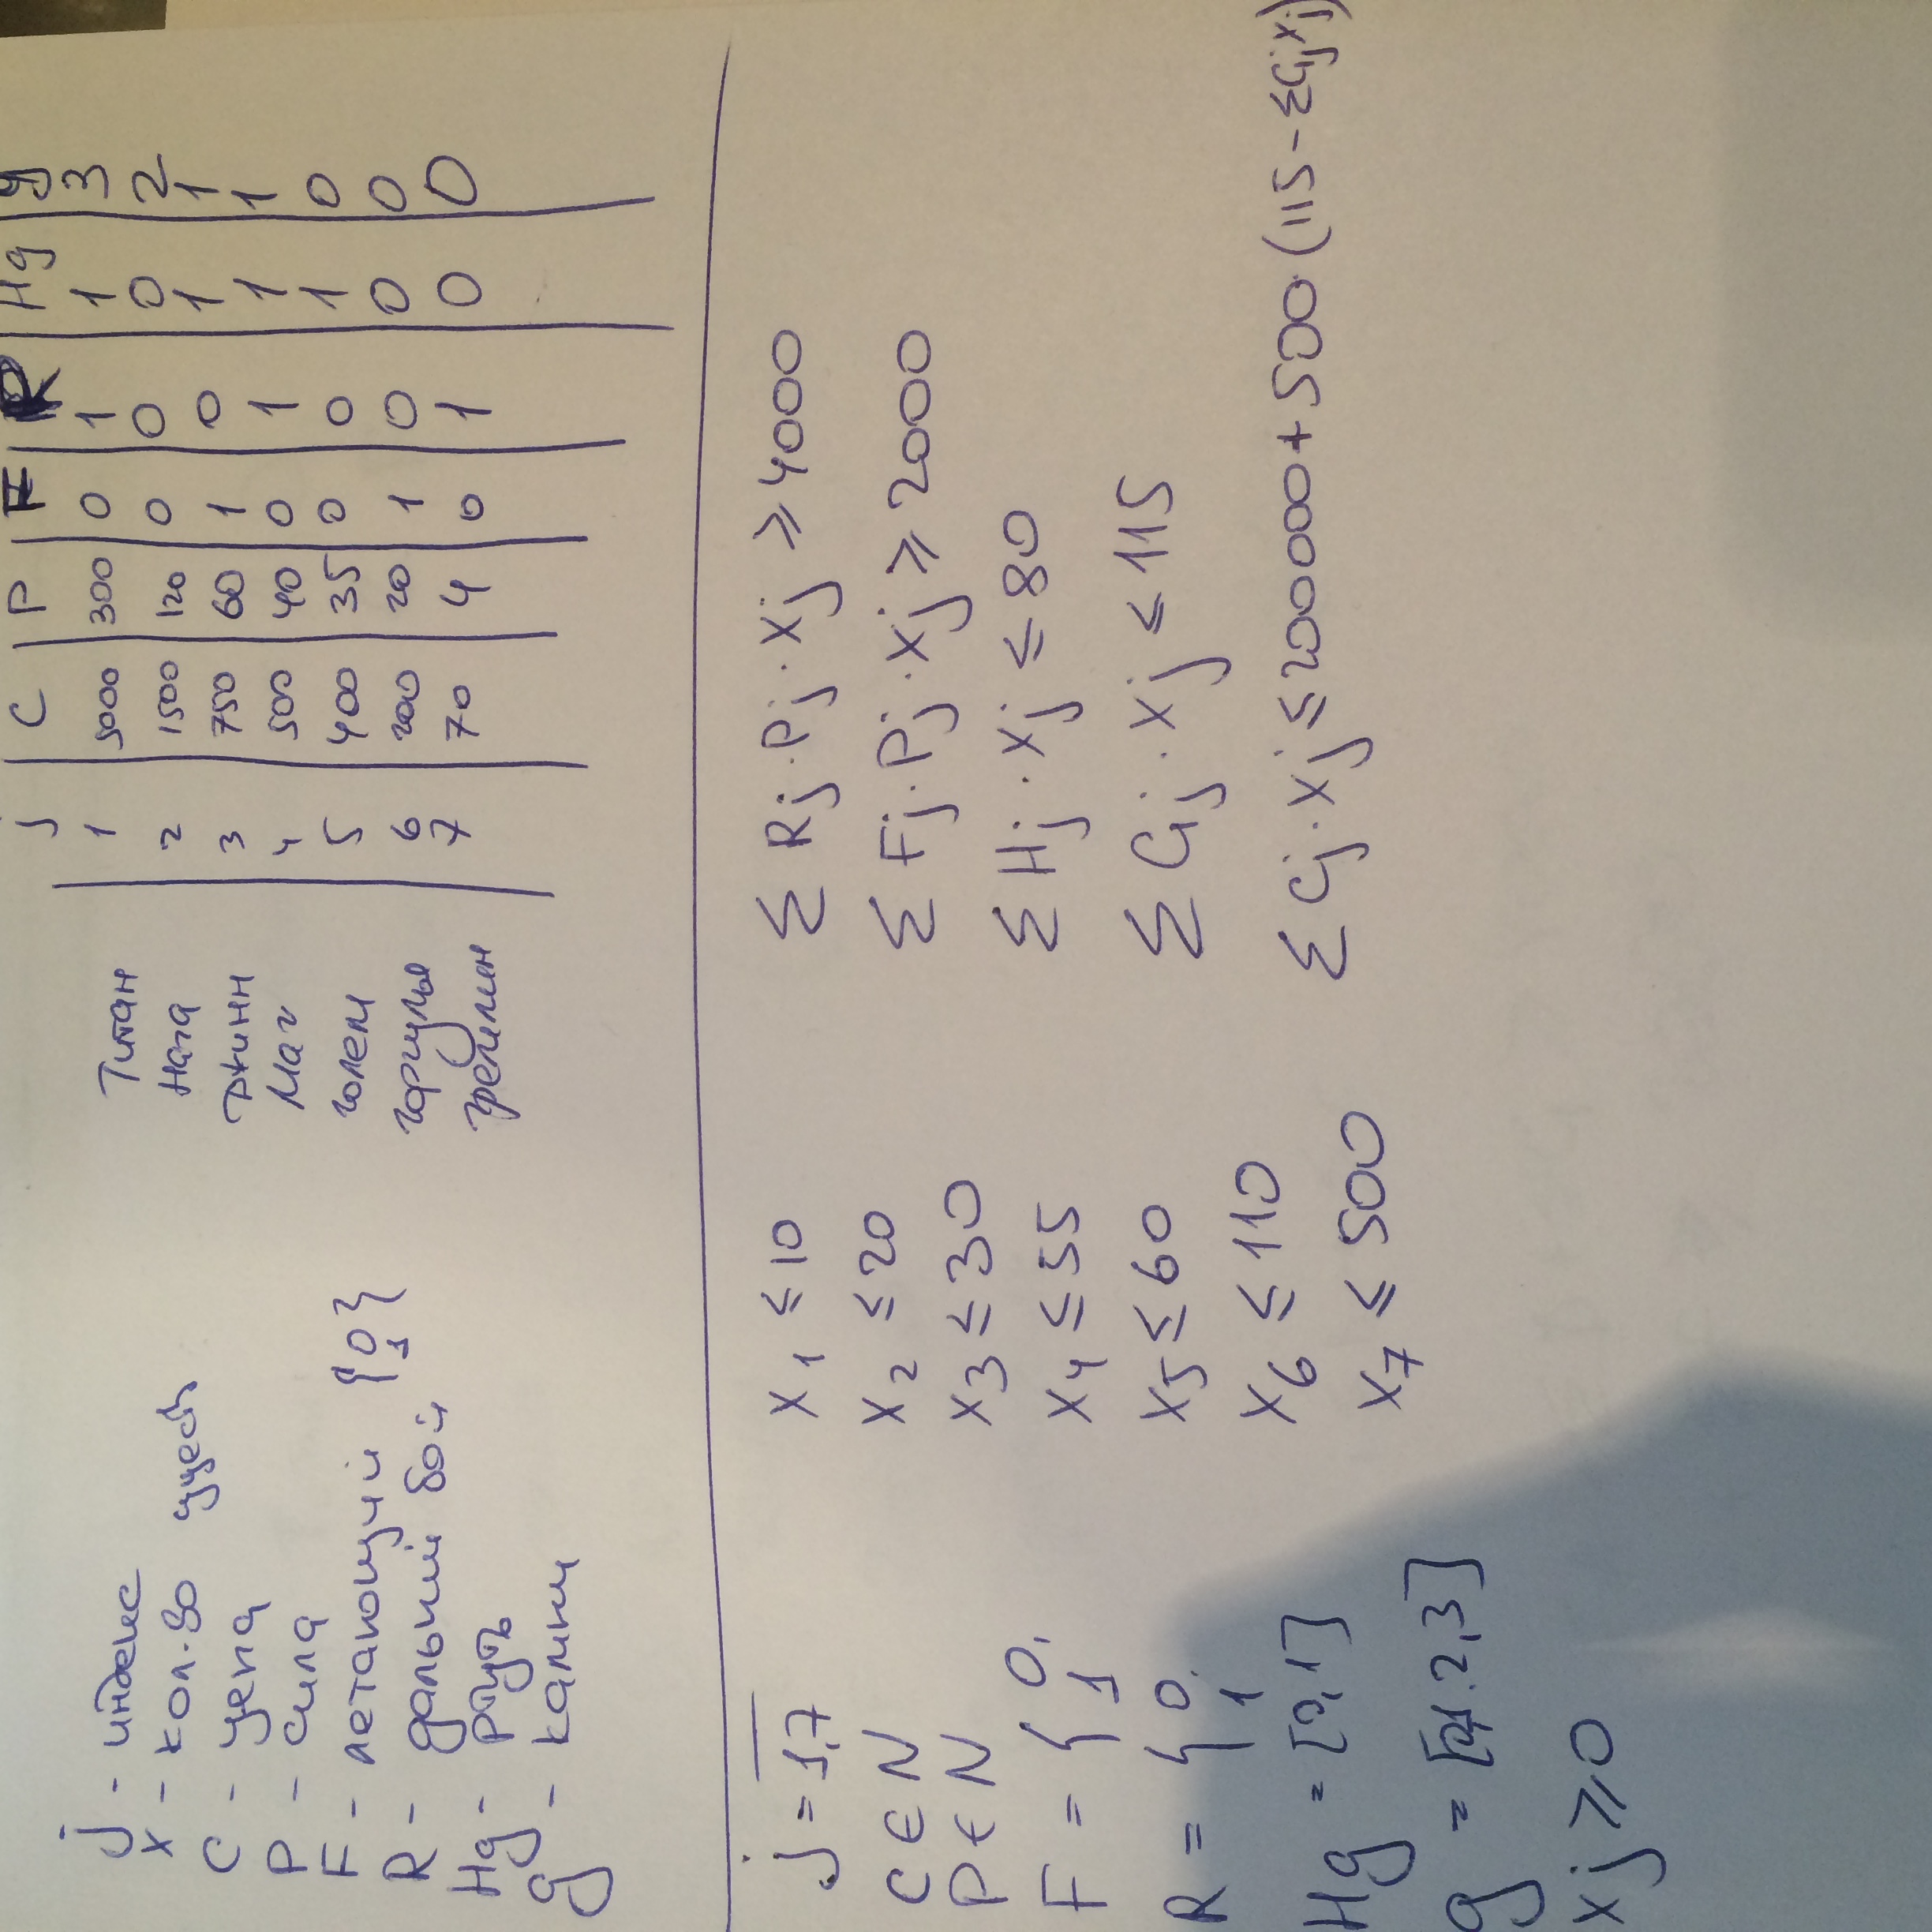 j - индекс
x - кол-во существ
C - цена
P - сила
F - летающий {0 1}
R - дальний бой
Hg - ртуть
g - камни
j C P F R Hg g
Титан 1 5000 300 0 1 1 3
Нага 2 1500 120 0 0 0 2
Джинн 3 750 60 1 0 1 1
Маг 4 500 40 0 1 1 1
голем 5 400 35 0 0 1 0
горгулья 6 200 20 1 0 0 0
гремлин 7 70 4 0 1 0 0
j = 1,7
C ∈ N
P ∈ N
F = { 0, 1
R = { 0, 1
Hg = [0,1]
g = [0,1.2,3]
xj ≥ 0
x1 ≤ 10
x2 ≤ 20
x3 ≤ 30
x4 ≤ 55
x5 ≤ 60
x6 ≤ 110
x7 ≤ 500
Σ Rj · Pj · Xj ≥ 4000
Σ Fj · Pj · Xj ≥ 2000
Σ Hj · Xj ≤ 80
Σ Gj · Xj ≤ 115
Σ Cj · Xj ≤ 200000 + 500 · (115 - ΣGjXj)